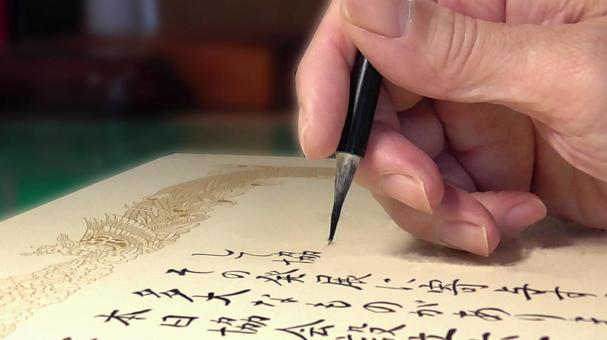 して協
その発展に寄与す
多大なものがあり
本日協会設